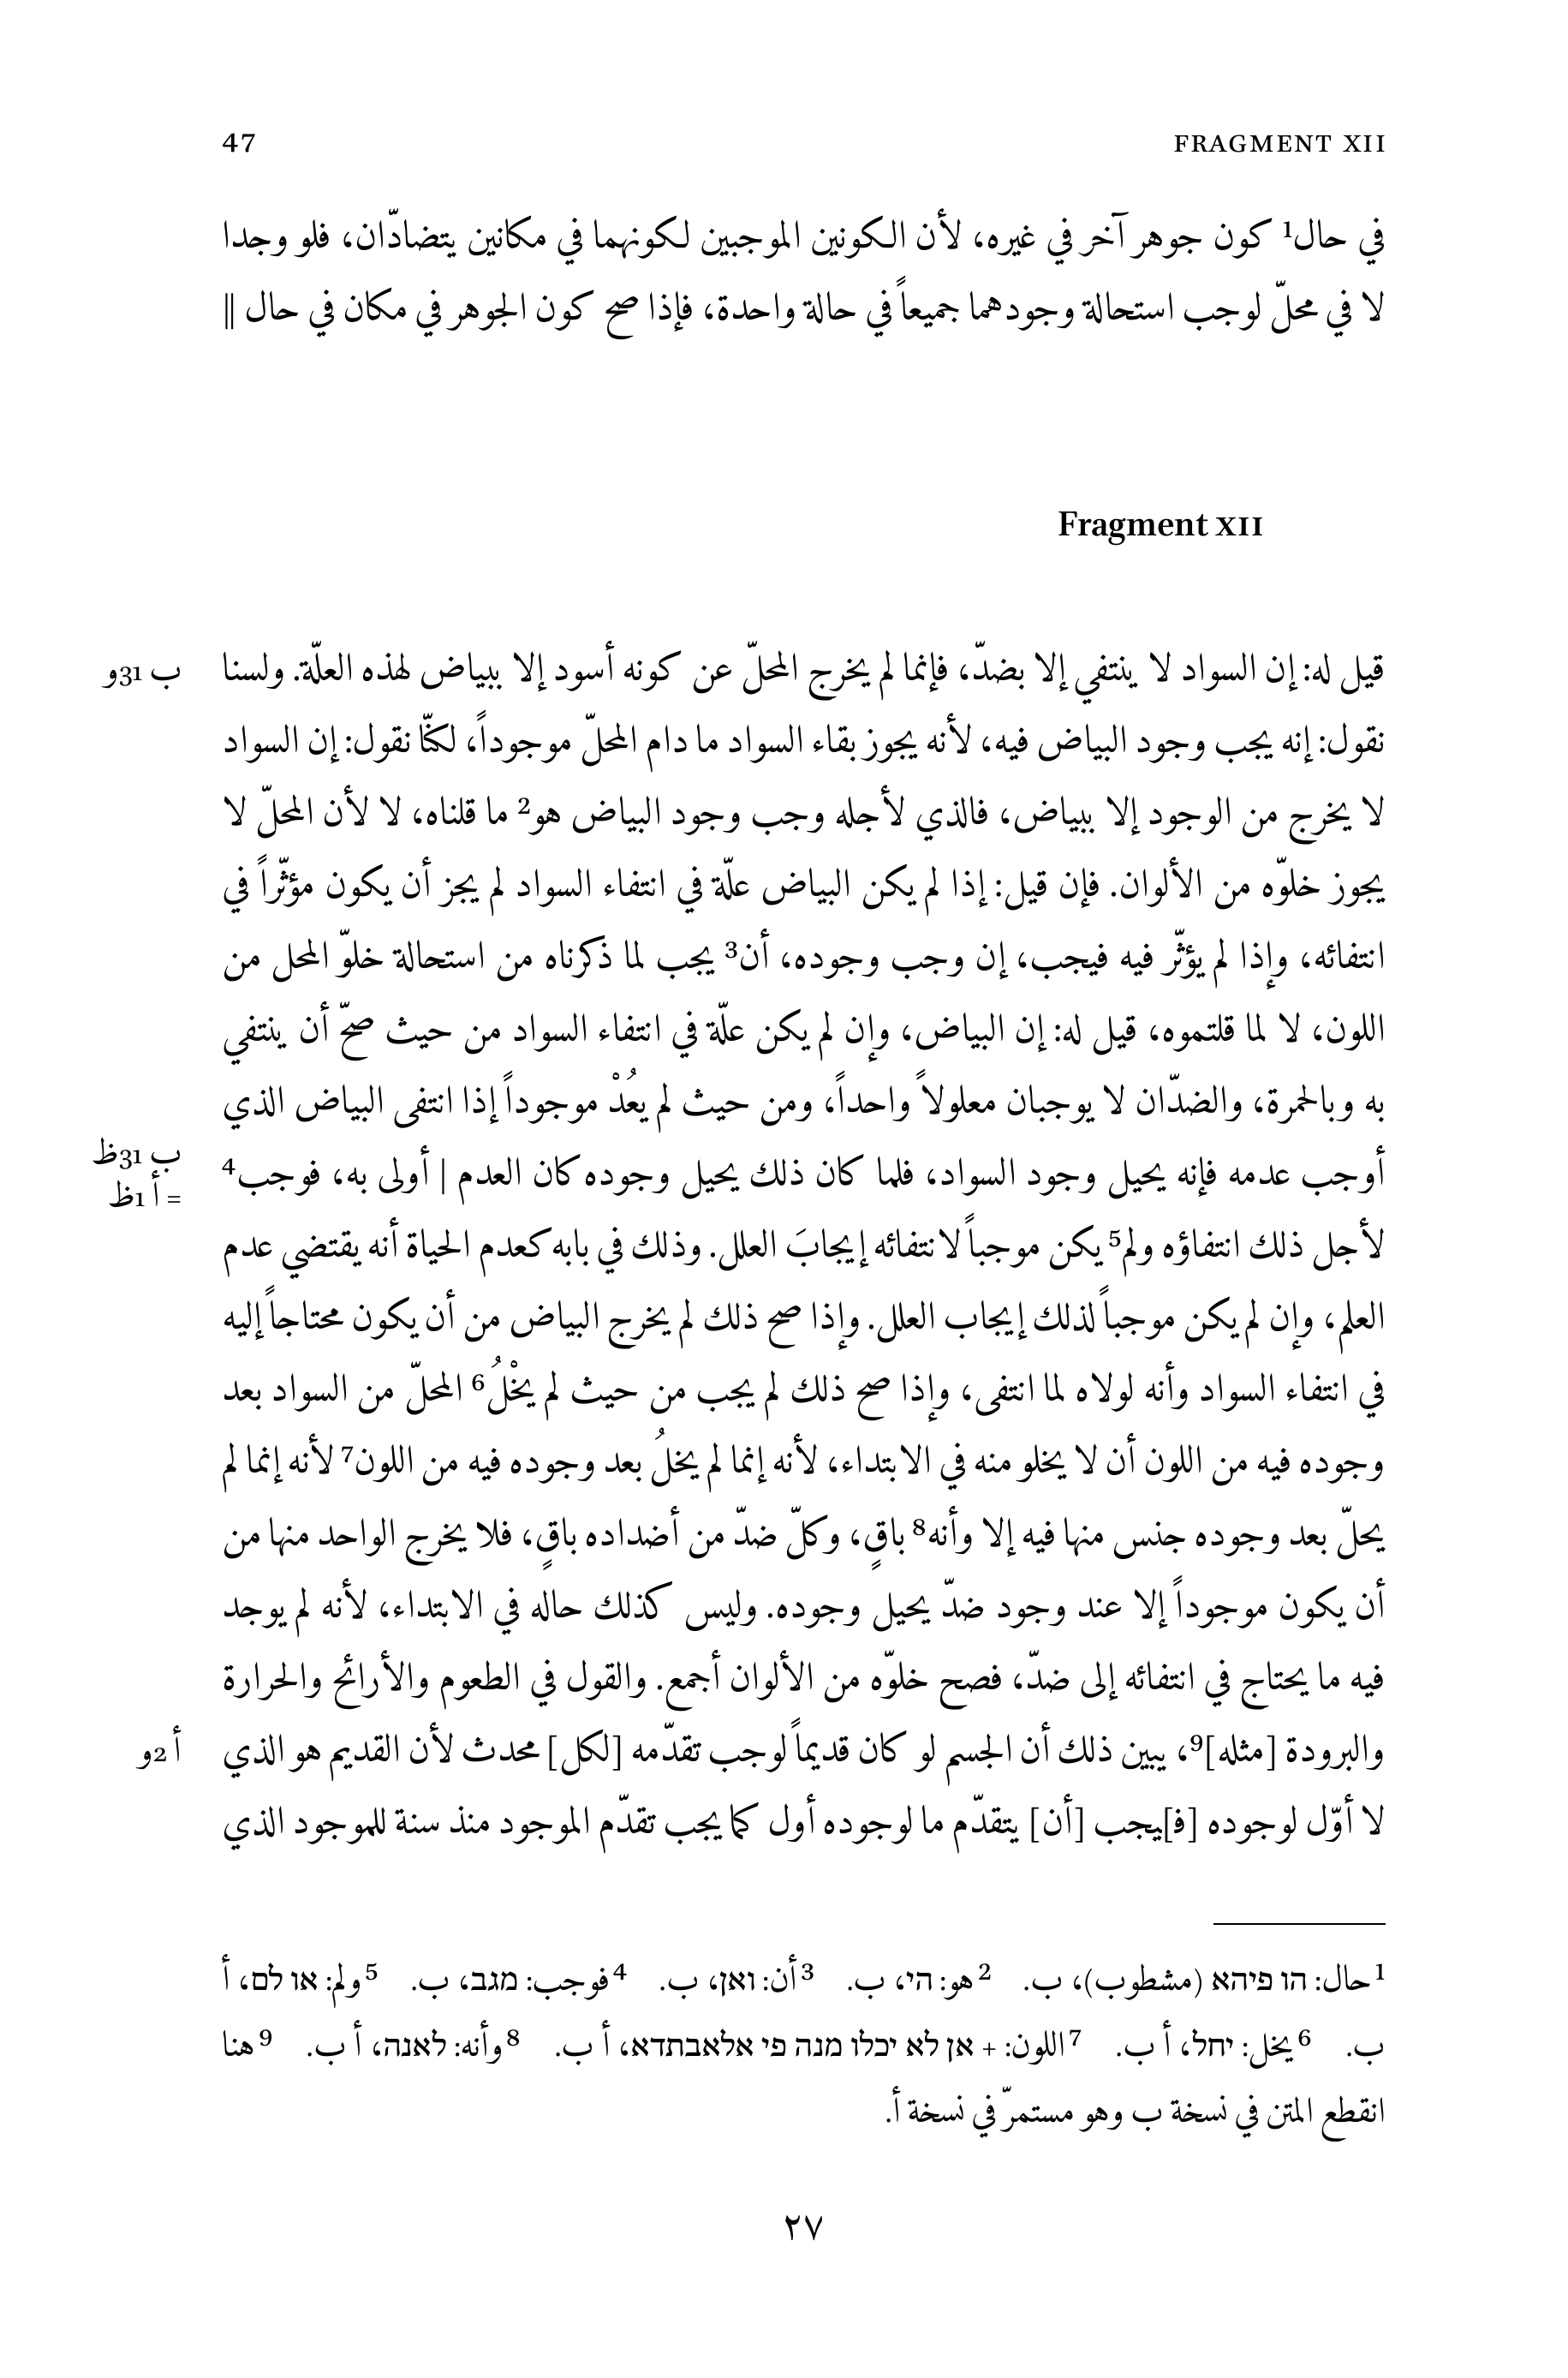 47
FRAGMENT XII
في حال1 كون جوهر آخر في غيره، لأن الكونين الموجبين لكونهما في مكانين يتضادّان، فلو وجدا
لا في محلّ لوجب استحالة وجودهما جميعاً في حالة واحدة، فإذا صح كون الجوهر في مكان في حال ||
Fragment XII
قيل له: إن السواد لا ينتفي إلا بضدّ، فإنما لم يخرج المحلّ عن كونه أسود إلا ببياض لهذه العلّة. ولسنا
ب 31و
نقول: إنه يجب وجود البياض فيه، لأنه يجوز بقاء السواد ما دام المحلّ موجوداً، لكنّا نقول: إن السواد
لا يخرج من الوجود إلا ببياض، فالذي لأجله وجب وجود البياض هو2 ما قلناه، لا لأن المحلّ لا
يجوز خلوّه من الألوان. فإن قيل: إذا لم يكن البياض علّة في انتفاء السواد لم يجز أن يكون مؤثّراً في
انتفائه، وإذا لم يؤثّر فيه فيجب، إن وجب وجوده، أن3 يجب لما ذكرناه من استحالة خلوّ المحل من
اللون، لا لما قلتموه، قيل له: إن البياض، وإن لم يكن علّة في انتفاء السواد من حيث صحّ أن ينتفي
به وبالحمرة، والضدّان لا يوجبان معلولاً واحداً، ومن حيث لم يعُدْ موجوداً إذا انتفى البياض الذي
أوجب عدمه فإنه يحيل وجود السواد، فلما كان ذلك يحيل وجوده كان العدم | أولى به، فوجب4
ب 31ظ
= أ 1ظ
لأجل ذلك انتفاؤه ولم5 يكن موجباً لانتفائه إيجابَ العلل. وذلك في بابه كعدم الحياة أنه يقتضي عدم
العلم، وإن لم يكن موجباً لذلك إيجاب العلل. وإذا صح ذلك لم يخرج البياض من أن يكون محتاجاً إليه
في انتفاء السواد وأنه لولاه لما انتفى، وإذا صح ذلك لم يجب من حيث لم يخْلُ6 المحلّ من السواد بعد
وجوده فيه من اللون أن لا يخلو منه في الابتداء، لأنه إنما لم يخلُ بعد وجوده فيه من اللون7 لأنه إنما لم
يحلّ بعد وجوده جنس منها فيه إلا وأنه8 باقٍ، وكلّ ضدّ من أضداده باقٍ، فلا يخرج الواحد منها من
أن يكون موجوداً إلا عند وجود ضدّ يحيل وجوده. وليس كذلك حاله في الابتداء، لأنه لم يوجد
فيه ما يحتاج في انتفائه إلى ضدّ، فصح خلوّه من الألوان أجمع. والقول في الطعوم والأرائح والحرارة
والبرودة [مثله]9، يبين ذلك أن الجسم لو كان قديماً لوجب تقدّمه [لكل] محدث لأن القديم هو الذي
أ 2و
لا أوّل لوجوده [فـ]يجب [أن] يتقدّم ما لوجوده أول كما يجب تقدّم الموجود منذ سنة للموجود الذي
1 حال: הו פיהא (مشطوب)، ب. 2 هو: הי، ب. 3 أن: ואן، ب. 4 فوجب: מגב، ب. 5 ولم: או לם، أ
ب. 6 يخل: יחל، أ ب. 7 اللون: + אן לא יכלו מנה פי אלאבתדא، أ ب. 8 وأنه: לאנה، أ ب. 9 هنا
انقطع المتن في نسخة ب وهو مستمرّ في نسخة أ.
٢٧